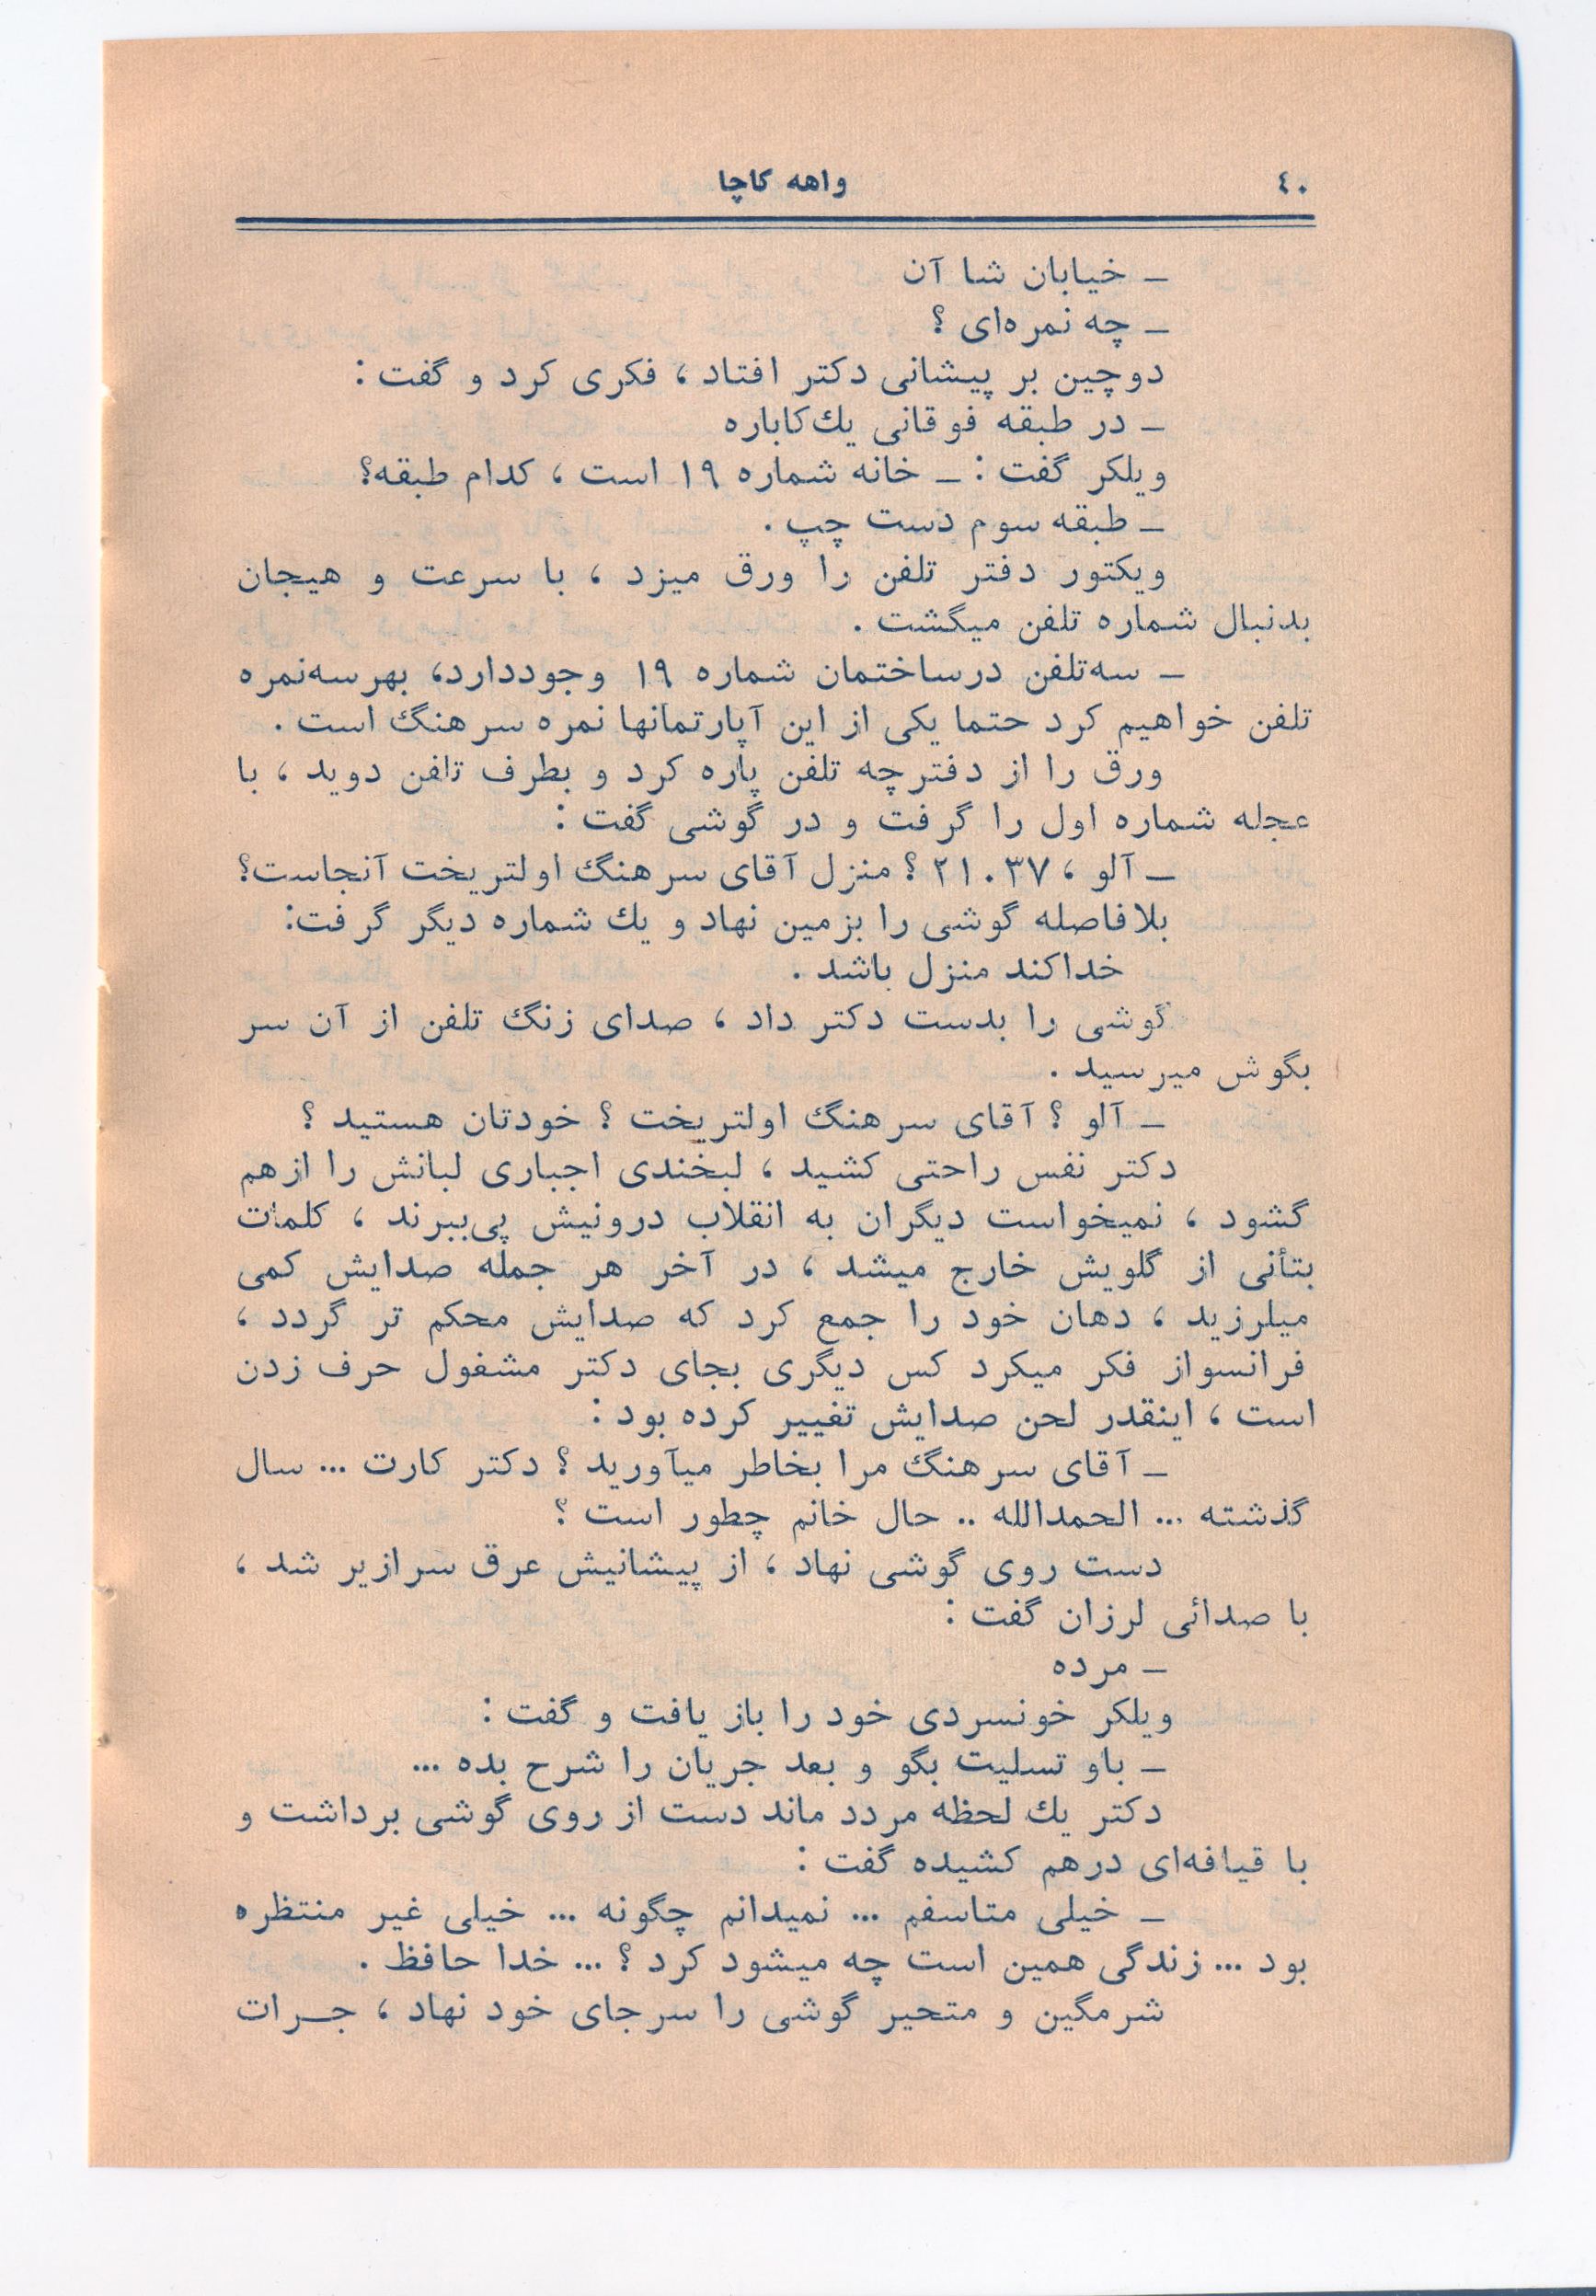 ٤٠
واهه کاچا
ـ خیابان شا آن
ـ چه نمره‌ای ؟
دوچین بر پیشانی دکتر افتاد ، فکری کرد و گفت :
ـ در طبقه فوقانی یك‌کاباره
ویلکر گفت : ـ خانه شماره ۱۹ است ، کدام طبقه؟
ـ طبقه سوم دست چپ .
ویکتور دفتر تلفن را ورق میزد ، با سرعت و هیجان
بدنبال شماره تلفن میگشت .
ـ سه‌تلفن درساختمان شماره ۱۹ وجوددارد، بهرسه‌نمره
تلفن خواهیم کرد حتما یکی از این آپارتمانها نمره سرهنگ است .
ورق را از دفترچه تلفن پاره کرد و بطرف تلفن دوید ، با
عجله شماره اول را گرفت و در گوشی گفت :
ـ آلو ، ۲۱۰۳۷ ؟ منزل آقای سرهنگ اولتریخت آنجاست؟
بلافاصله گوشی را بزمین نهاد و یك شماره دیگر گرفت:
خداکند منزل باشد .
گوشی را بدست دکتر داد ، صدای زنگ تلفن از آن سر
بگوش میرسید .
ـ آلو ؟ آقای سرهنگ اولتریخت ؟ خودتان هستید ؟
دکتر نفس راحتی کشید ، لبخندی اجباری لبانش را ازهم
گشود ، نمیخواست دیگران به انقلاب درونیش پی‌ببرند ، کلمات
بتأنی از گلویش خارج میشد ، در آخر هر جمله صدایش کمی
میلرزید ، دهان خود را جمع کرد که صدایش محکم تر گردد ،
فرانسواز فکر میکرد کس دیگری بجای دکتر مشغول حرف زدن
است ، اینقدر لحن صدایش تغییر کرده بود :
ـ آقای سرهنگ مرا بخاطر میآورید ؟ دکتر کارت ... سال
گذشته ... الحمدالله .. حال خانم چطور است ؟
دست روی گوشی نهاد ، از پیشانیش عرق سرازیر شد ،
با صدائی لرزان گفت :
ـ مرده
ویلکر خونسردی خود را باز یافت و گفت :
ـ باو تسلیت بگو و بعد جریان را شرح بده ...
دکتر یك لحظه مردد ماند دست از روی گوشی برداشت و
با قیافه‌ای درهم کشیده گفت :
ـ خیلی متاسفم ... نمیدانم چگونه ... خیلی غیر منتظره
بود ... زندگی همین است چه میشود کرد ؟ ... خدا حافظ .
شرمگین و متحیر گوشی را سرجای خود نهاد ، جـرات